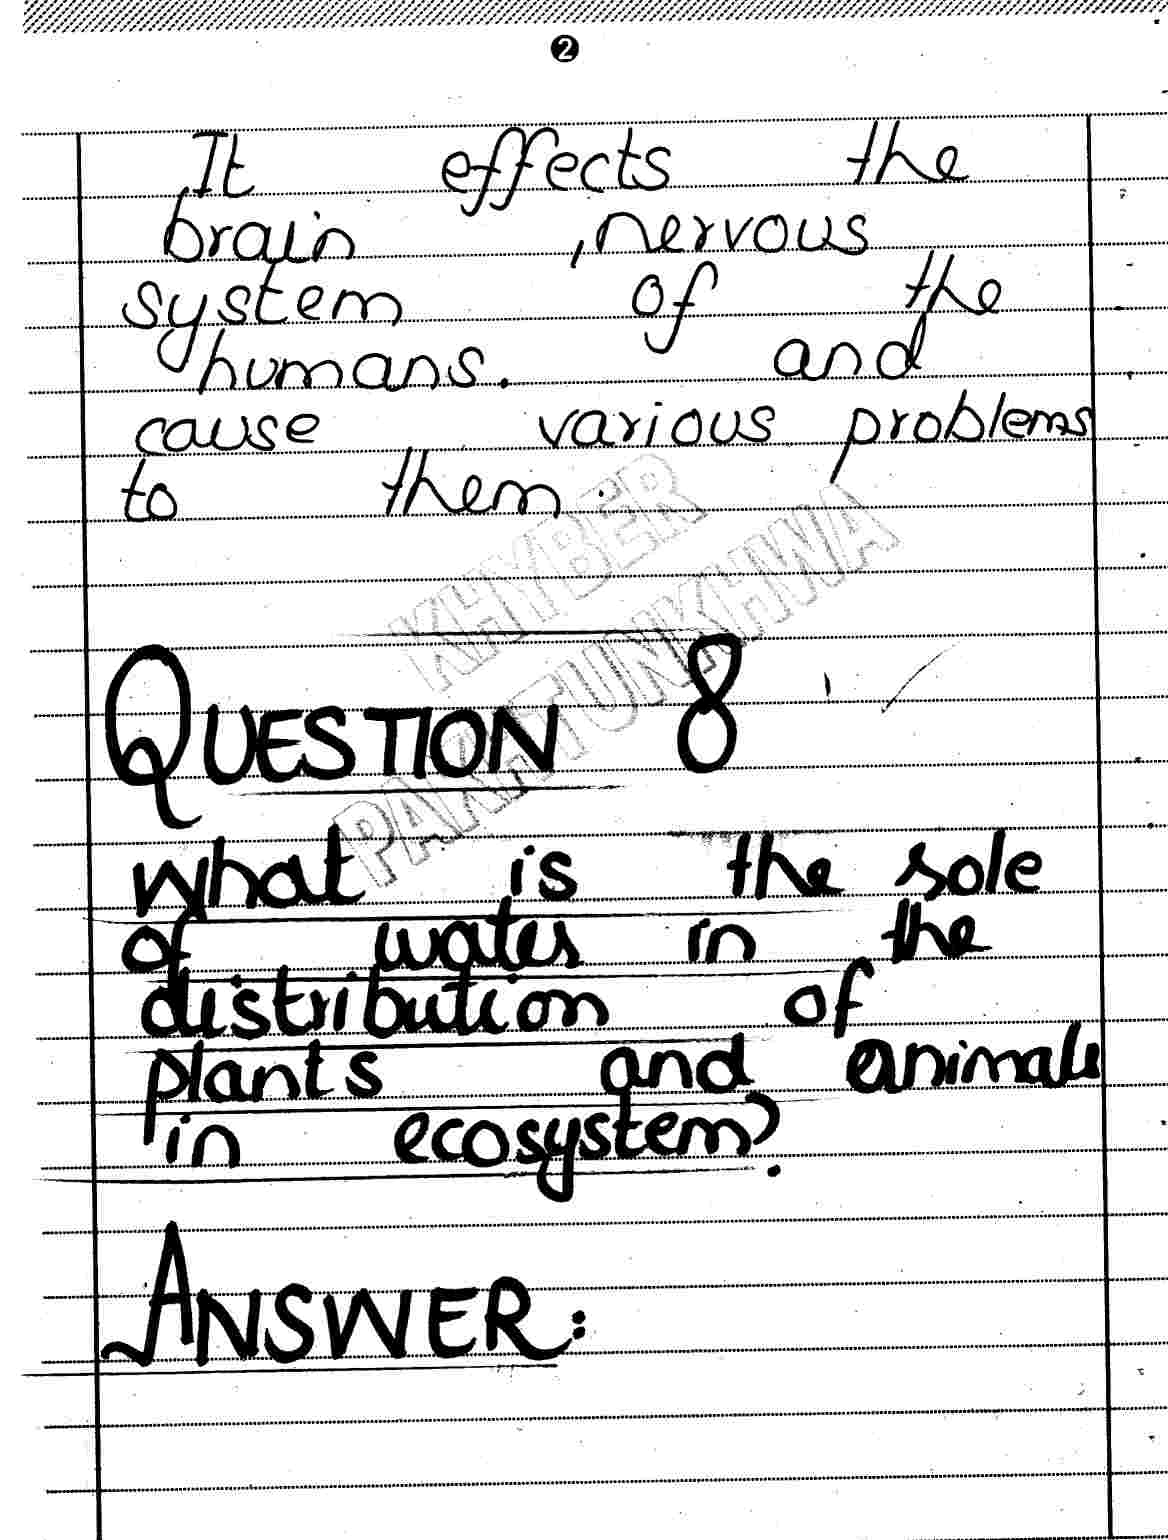 2
It effects the
brain , nervous
system of the
humans. and
cause various problems
to them.
KHYBER
PAKHTUNKHWA
QUESTION 8
what is the role
of water in the
distribution of
plants and animals
in ecosystem?
ANSWER: